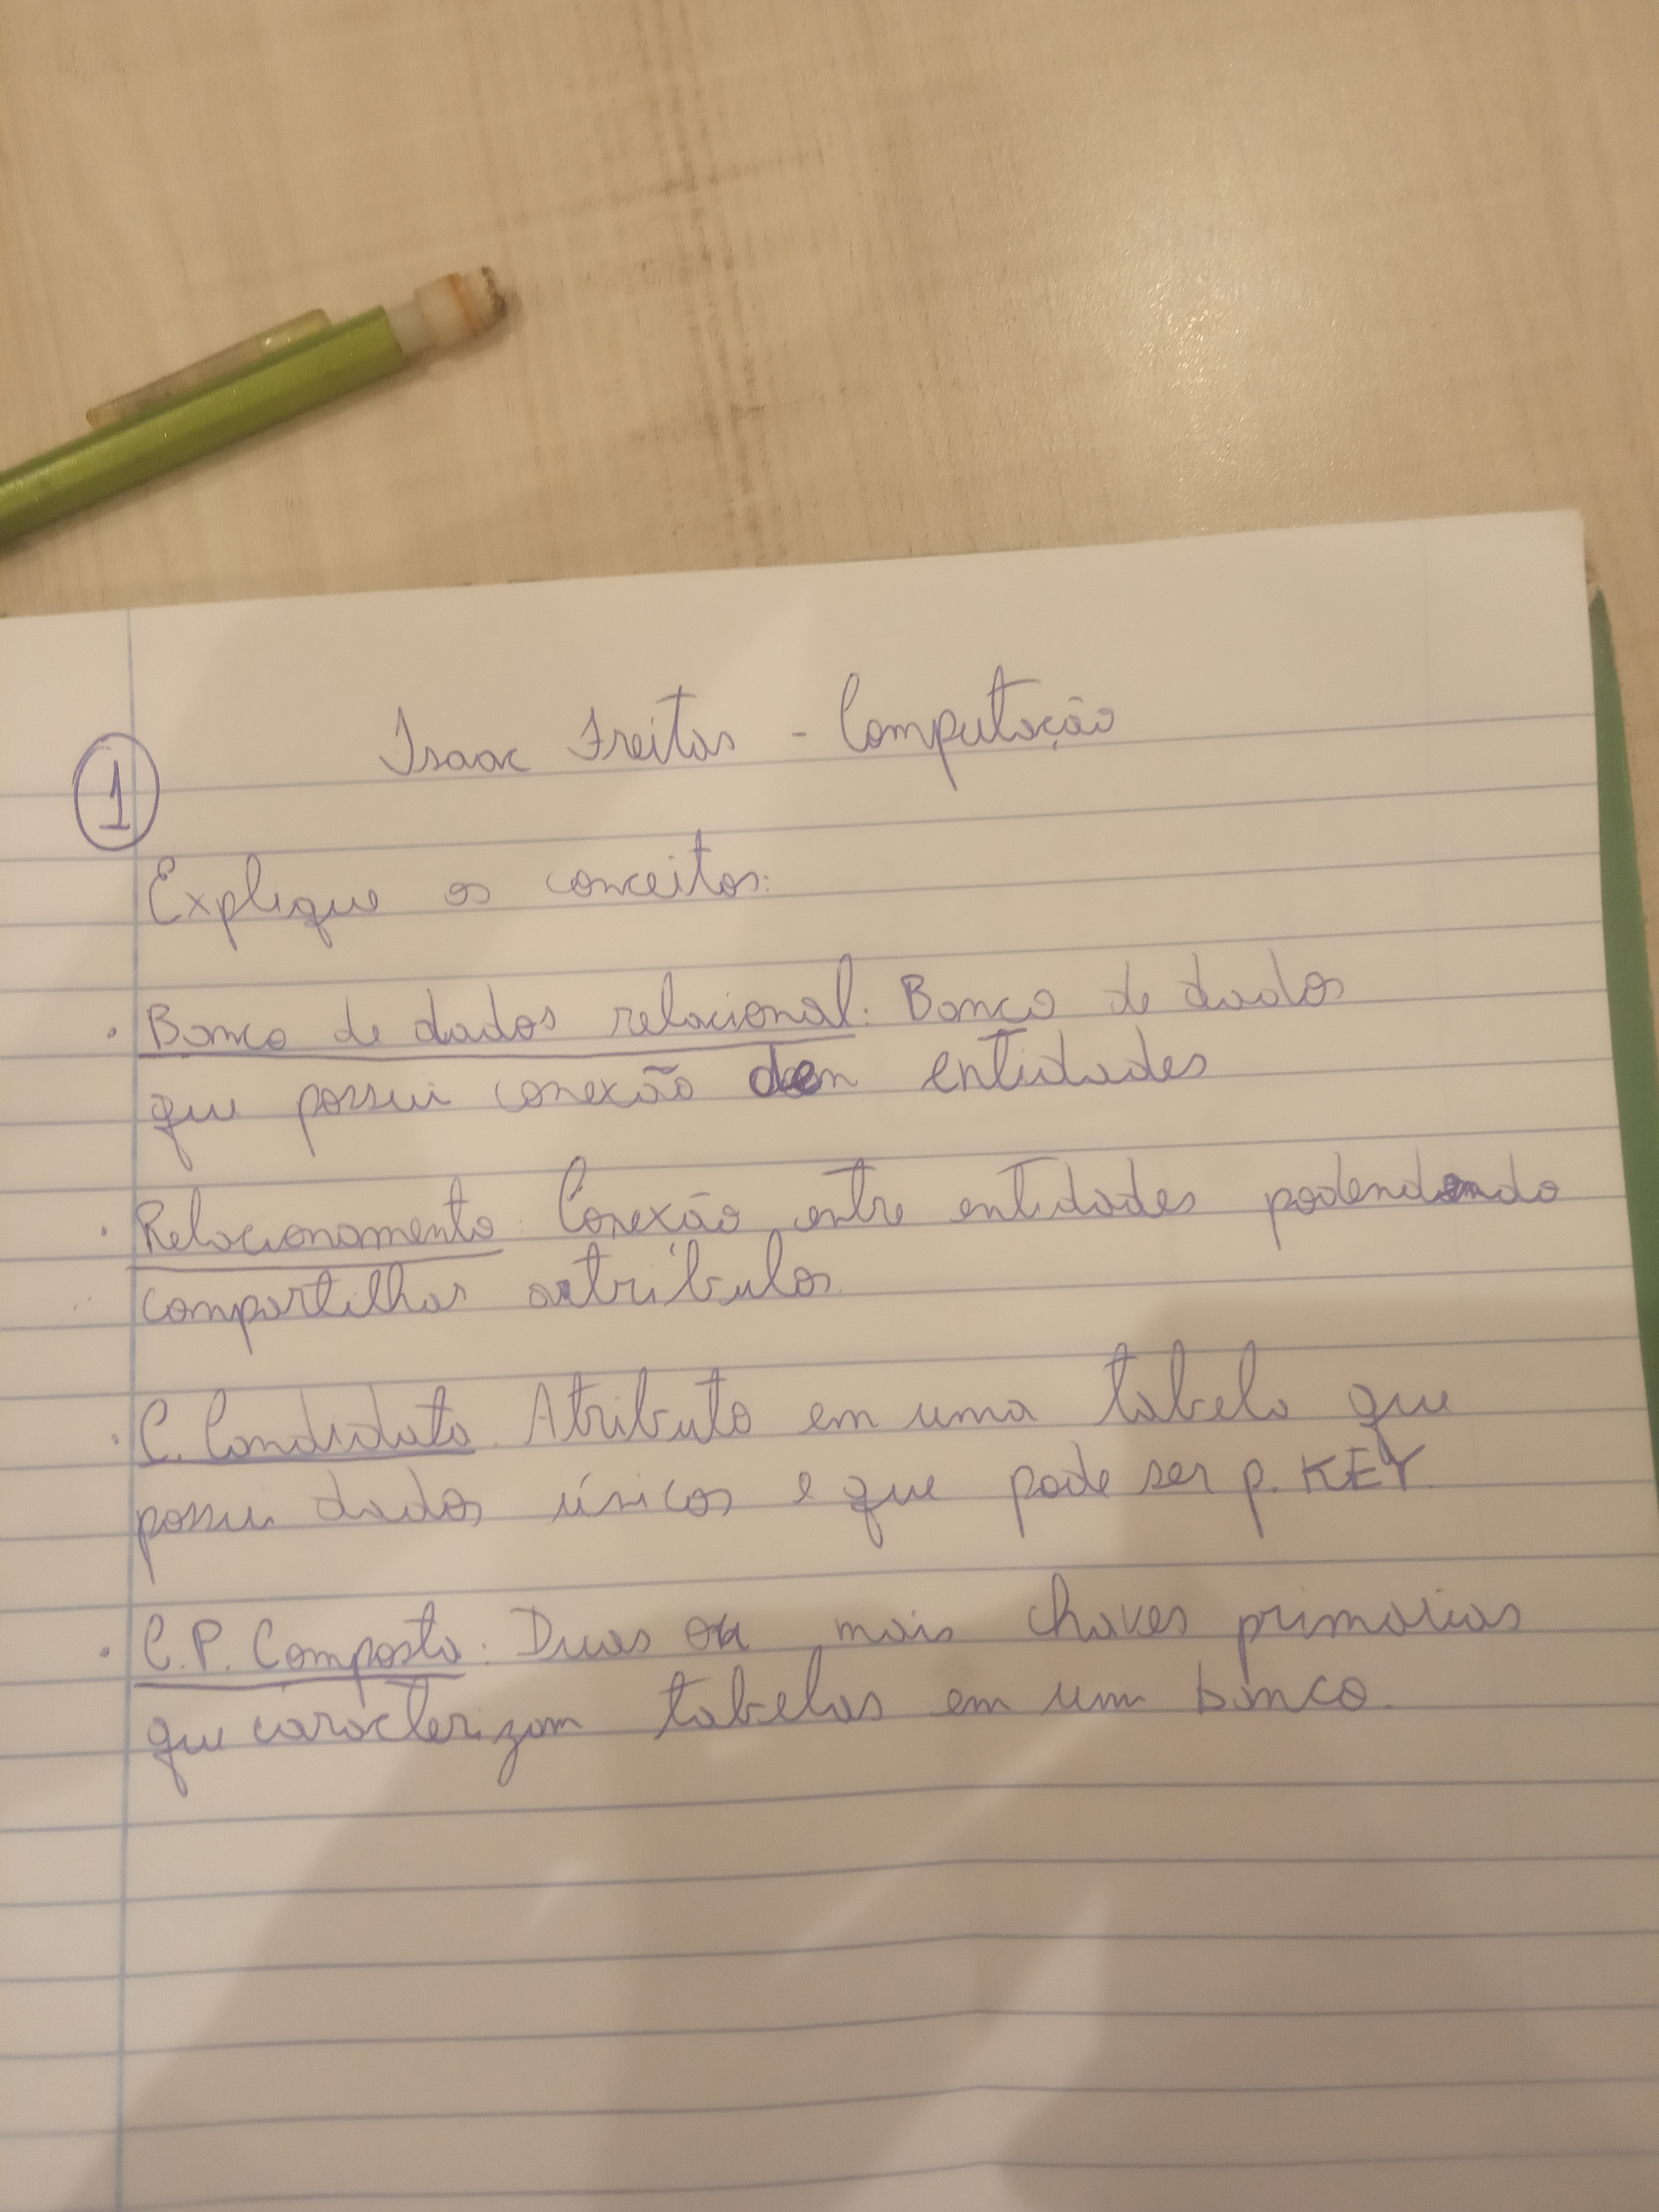 Isaac Freitas - Computação
1
Explique os conceitos:
· Banco de dados relacional: Banco de dados
que possui conexão entidades
· Relacionamento: Conexão entre entidades podendo
compartilhar atributos.
· C. Candidata: Atributo em uma tabela que
possui dados únicos e que pode ser p. KEY.
· C.P. Composta: Duas ou mais chaves primarias
que caracterizam tabelas em um banco.